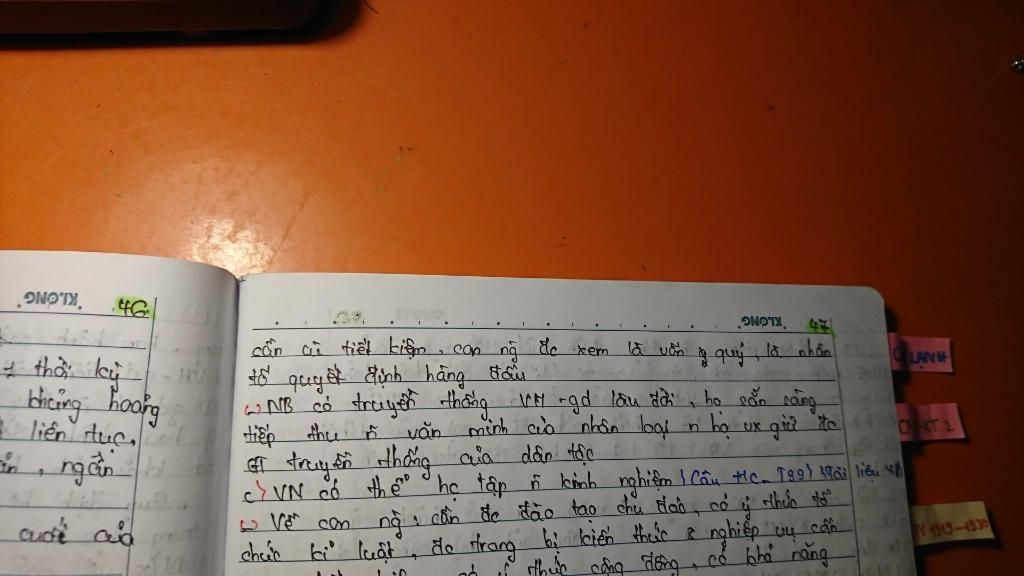 KLONG 46
thời kỳ
khủng hoảng
liên tục.
ngắn
cuối của
KLONG 47
cần cù tiết kiệm, con ng đc xem là vốn quý, là nhân
tố quyết định hàng đầu
NB có truyền thống VH-gd lâu đời, họ sẵn sàng
tiếp thu n̄ văn minh của nhân loại n họ vx giữ đc
truyền thống của dân tộc
VN có thể học tập n̄ kinh nghiệm (Câu HC- T99) Tài liệu
Về con ng: cần đc đào tạo chu đáo, có ý thức tổ
chức kỉ luật, đc trang bị kiến thức & nghiệp vụ cần
ý thức cộng đồng, có khả năng
LẠNH
CN-KT 2
1919-1930